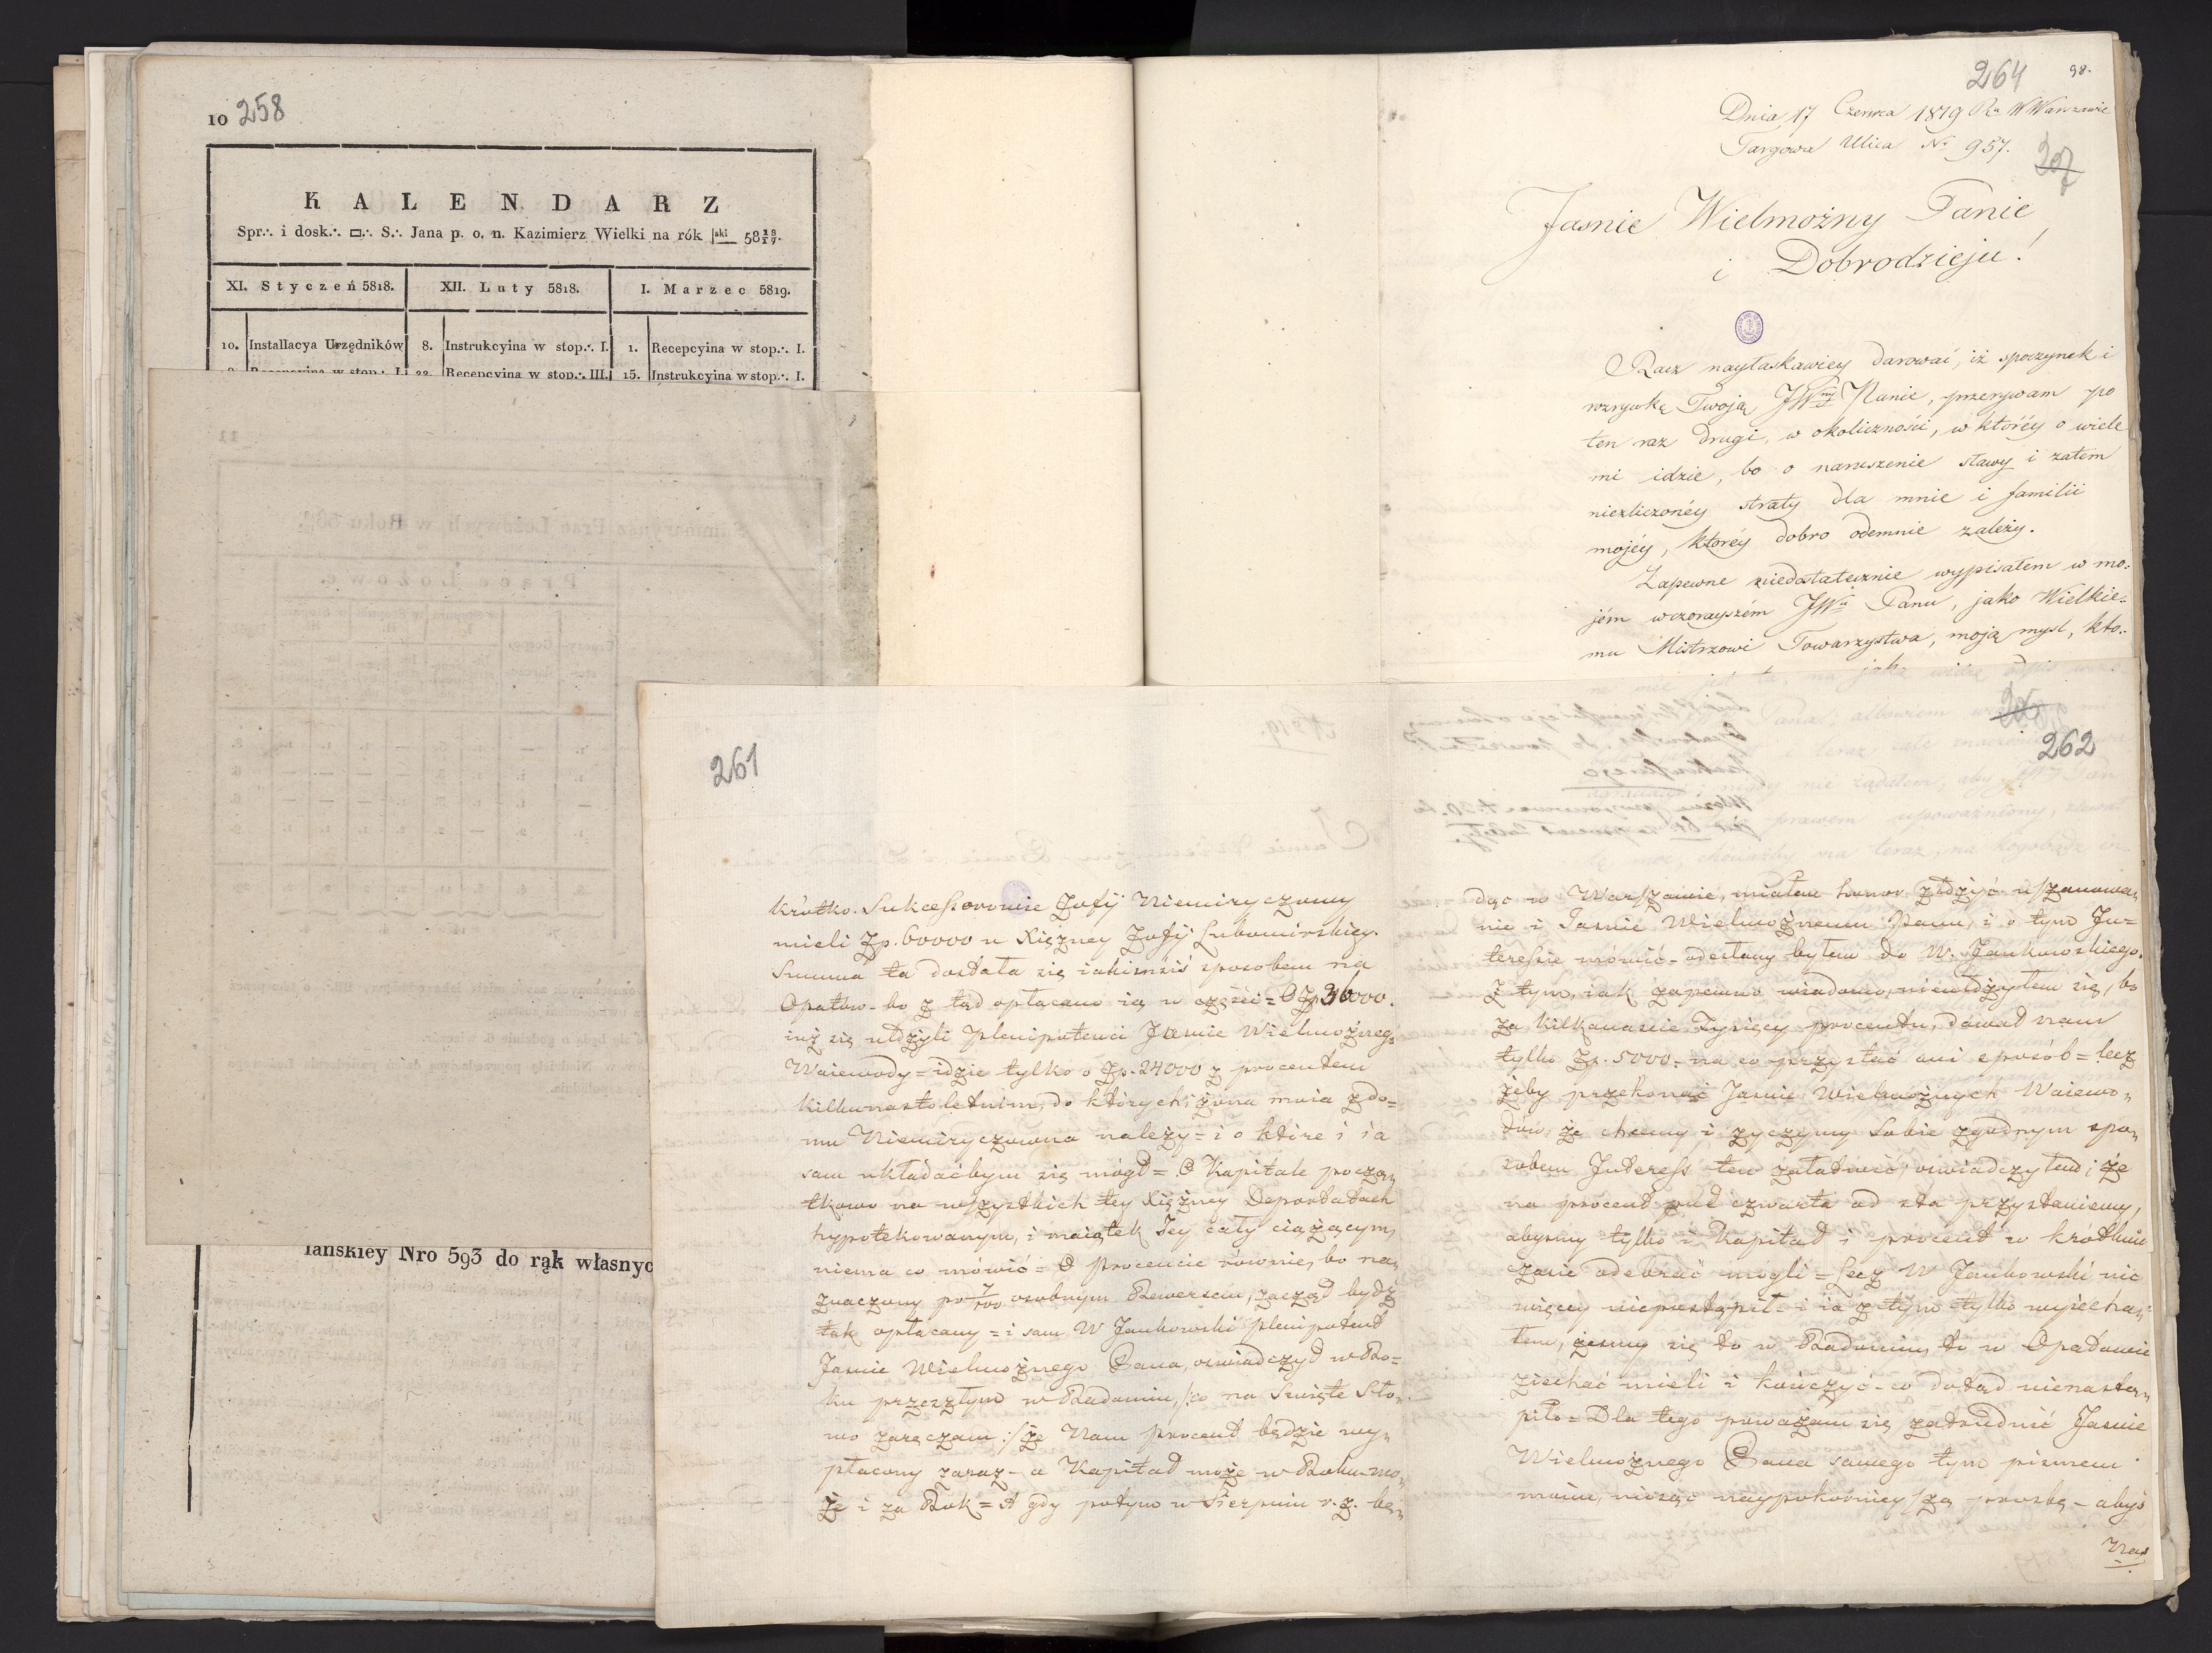 10 258
K A L E N D A R Z
Spr.·. i dosk.·. ▭.·. S.·. Jana p. o. n. Kazimierz Wielki na rók |ski 58 18/19.
XI. Styczeń 5818. XII. Luty 5818. I. Marzec 5819.
10. Installacya Urzędników 8. Instrukcyina w stop.·. I. 1. Recepcyina w stop.·. I.
Recepcyina w stop.·. I. 22. Recepcyina w stop.·. III. 15. Instrukcyina w stop.·. I.
iańskiey Nro 593 do rąk własnyc
264 98.
Dnia 17 Czerwca 1819 Ru W Warszawie
Targowa Ulica No 957.
207
Jasnie Wielmożny Panie,
i Dobrodzieju!
Racz nayłaskawiey darować, iż spoczynek i
rozrywkę Twoją JWny Panie, przerywam po
ten raz drugi, w okoliczności, w któréy o wiele
mi idzie, bo o naruszenie sławy i zatém
niezliczonéy straty dla mnie i familii
mojéy, któréy dobro odemnie zależy.
Zapewne niedostatecznie wypisałem w mo-
jém wczorayszém JWu Panu, jako Wielkie-
mu Mistrzowi Towarzystwa, moją mysl, któ-
261
krótko. Sukcessorowie Zofij Niemiryczowy
mieli Zp. 60000 u Xiężney Zofij Lubomirskiey.
Summa ta dostała się iakimsiś sposobem na
Opatów - bo z tąd opłacano ią w części = O Zp 36000.
iuż się ułożyli Plenipotenci Jasnie Wielmożnego
Woiewody = idzie tylko o Zp. 24000 z procentem
kilkunastoletnim, do których, żona moia z do=
mu Niemiryczowna należy = i o które i ia
sam układaćbym się mógł = O Kapitale począ„
tkowo na wszystkich tey Xiężney Deportatach
hypotekowanym, i maiątek Jey cały ciążącym,
niema co mówić = O procencie równie, bo na„
znaczony po 7/100 osobnym Rewersem, zaczął bydź
tak opłacany = i sam W Jankowski plenipotent
Jasnie Wielmożnego Pana, oswiadczył w Ro=
ku przeszłym w Radomiu, /:co na Swięte Sło„
wo zaręczam:/ że Nam procent będzie wy„
płacony zaraz - a Kapitał może w Roku mo„
że i za Rok = A gdy potym w Sierpniu r. z. bę„
262
dąc w Warszawie, miałem honor złożyć uszanowa„
nie i Jasnie Wielmożnemu Panu, i o tym In=
teressie mówić - odesłany byłem do W. Jankowskiego.
Z tym, iak zapewno wiadomo, nieułożyłem się, bo
za kilkanascie Tysięcy procentu, dawał nam
tylko Zp. 5000. na co przystać ani sposób = lecz
żeby przekonać Jasnie Wielmożnych Woiewo„
dow, że chcemy i życzymy sobie zgodnym spo„
sobem Interess ten załatwić, oswiadczyłem; że
na procent pół czwarta od sta przystaniemy,
abysmy tylko i Kapitał i procent w krótkim
czasie odebrać mogli = Lecz W Jankowski nic
więcey niepostąpił - i ia z tym tylko wyiecha„
łem, żesmy się to w Radomiu, to w Opatowie
ziechać mieli i kończyć - co dotąd nienastą„
piło = Dla tego poważam się zatrudnić Jasnie
Wielmożnego Pana samego tym pismem
moim, niosąc naypokornieyszą prozbę - abyś
Nas